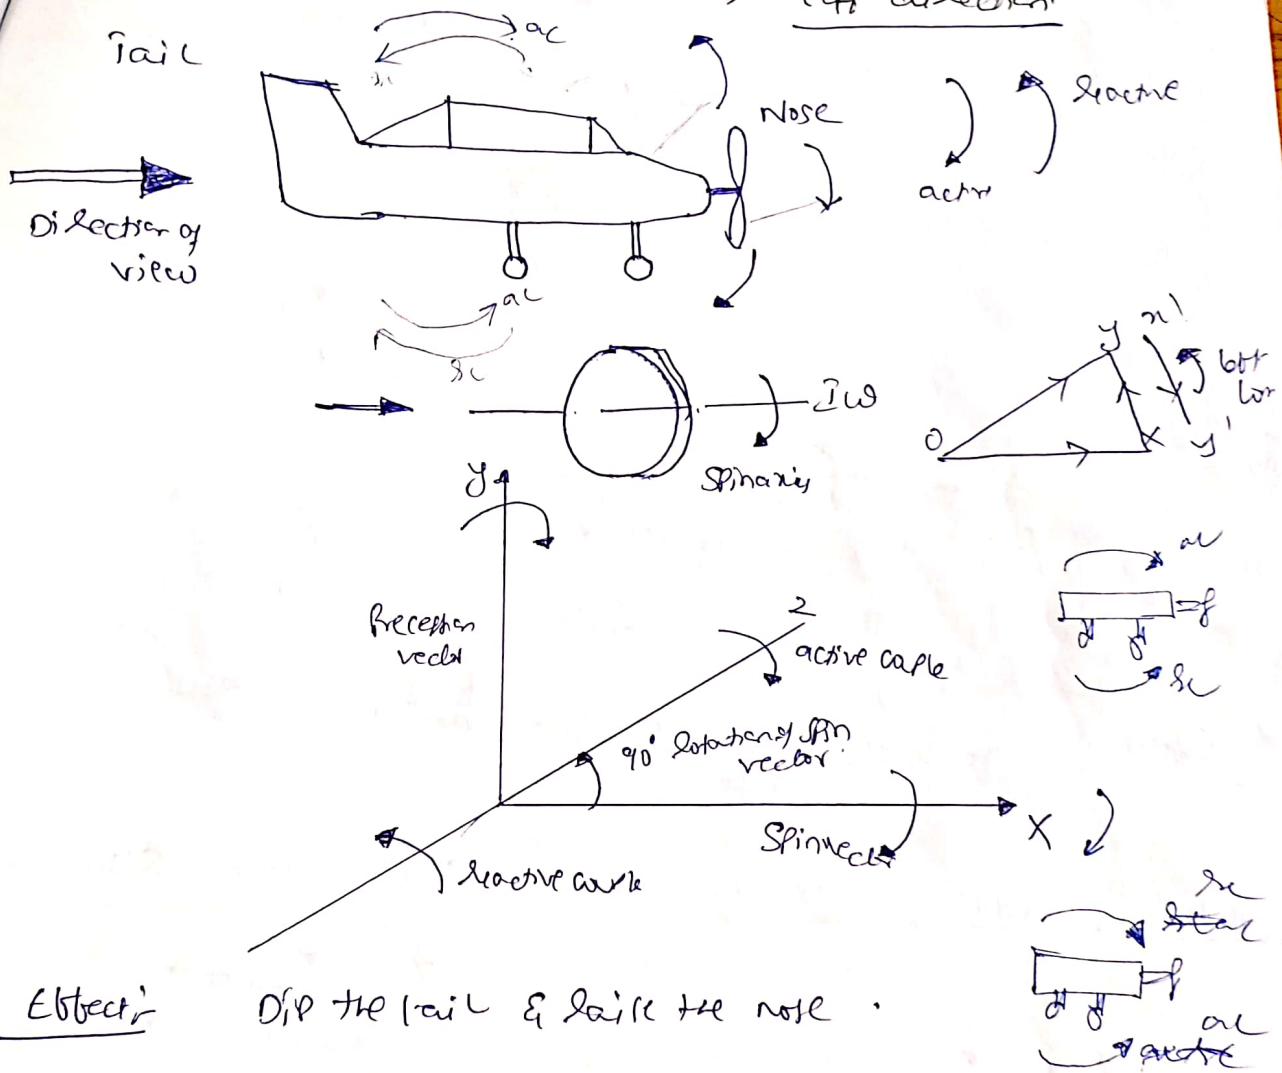 direction
Tail
ac
Nose
reactive
active
Direction of
view
ac
rc
Iω
Spin axis
y
x'
O
x
y'
y
Precession
vector
z
active couple
90° rotation of spin
vector
Spin vector
X
reactive couple
ac
rc
rc
ac
Effect:- Dip the tail & raise the nose .